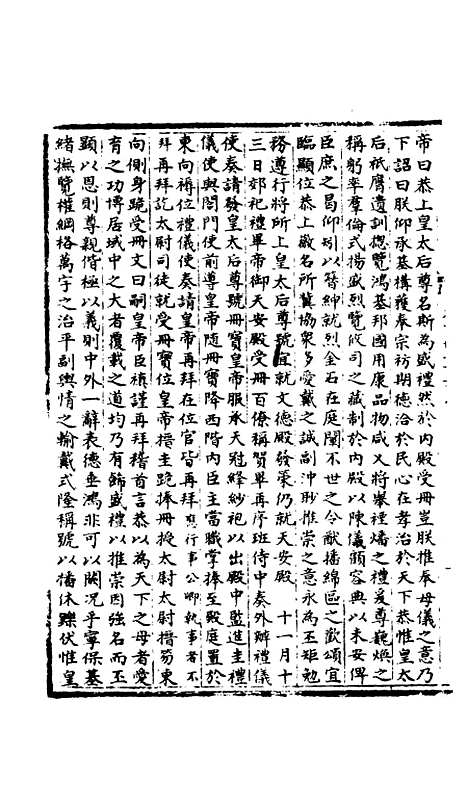 帝曰恭上皇太后尊名斯為盛禮然於內殿受冊豈朕推奉母儀之意乃
下詔曰朕仰承基構獲奉宗祊期德洽於民心在孝治於天下恭惟皇太
后祇膺遺訓摠覽鴻基邦國用康品物咸乂將舉禋燔之禮爰尊巍煥之
稱躬率羣倫式揚盛烈覽攸司之藏制於內殿以陳儀顧容典以未安俾
臣庶之曷仰矧以簮紳就列金石在庭闡不世之令猷播綿區之歡頌宜
臨顯位恭上徽名所冀協衆多愛戴之誠副沖眇推崇之意永為丕矩勉
務遵行將所上皇太后尊號宜就文德殿發策仍就天安殿　十一月十
三日郊祀禮畢帝御天安殿受冊百僚稱賀畢再序班侍中奏外辦禮儀
使奏請發皇太后尊號冊寶皇帝服承天冠絳紗袍以出殿中監進圭禮
儀使與閤門使前導皇帝隨冊寶降西階內臣主當職掌捧至殿庭置於
東向褥位禮儀使奏請皇帝再拜在位官皆再拜應行事公卿執事者不
拜再拜訖太尉司徒就受冊寶位皇帝搢圭跪捧冊授太尉太尉搢笏東
向側身跪受冊文曰嗣皇帝臣禎謹再拜稽首言恭以為天下之母者愛
育之功博居域中之大者覆載之道均乃有飾盛禮以推崇因強名而丕
顯以恩則尊親偕極以義則中外一辭表德垂鴻非可以闕况乎寧保基
緒撫覽權綱格萬宇之治平副輿情之輸戴式隆稱號以播休躒伏惟皇